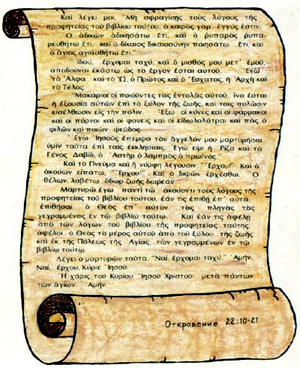 Καὶ λέγει μοι, "Μὴ σφραγίσῃς τοὺς λόγους τῆς
προφητείας τοῦ βιβλίου τούτου, ὁ καιρὸς γὰρ ἐγγύς ἐστιν.
Ὁ ἀδικῶν ἀδικησάτω ἔτι, καὶ ὁ ῥυπαρὸς ῥυπα-
ρευθήτω ἔτι, καὶ ὁ δίκαιος δικαιοσύνην ποιησάτω ἔτι, καὶ
ὁ ἅγιος ἁγιασθήτω ἔτι.
Ἰδού, ἔρχομαι ταχύ, καὶ ὁ μισθός μου μετ' ἐμοῦ,
ἀποδοῦναι ἑκάστῳ ὡς τὸ ἔργον ἔσται αὐτοῦ. Ἐγὼ
τὸ Ἄλφα καὶ τὸ Ὦ, ὁ Πρῶτος καὶ ὁ Ἔσχατος, ἡ Ἀρχὴ καὶ
τὸ Τέλος.
"Μακάριοι οἱ ποιοῦντες τὰς ἐντολὰς αὐτοῦ, ἵνα ἔσται
ἡ ἐξουσία αὐτῶν ἐπὶ τὸ ξύλον τῆς ζωῆς, καὶ τοῖς πυλῶσιν
εἰσέλθωσιν εἰς τὴν πόλιν. Ἔξω οἱ κύνες καὶ οἱ φαρμακοὶ
καὶ οἱ πόρνοι καὶ οἱ φονεῖς καὶ οἱ εἰδωλολάτραι καὶ πᾶς ὁ
φιλῶν καὶ ποιῶν ψεῦδος.
Ἐγὼ Ἰησοῦς ἔπεμψα τὸν ἄγγελόν μου μαρτυρῆσαι
ὑμῖν ταῦτα ἐπὶ ταῖς ἐκκλησίαις. Ἐγώ εἰμι ἡ Ῥίζα καὶ τὸ
Γένος Δαβίδ, ὁ Ἀστὴρ ὁ Λαμπρὸς ὁ πρωϊνός."
Καὶ τὸ Πνεῦμα καὶ ἡ νύμφη λέγουσιν, "Ἔρχου!" Καὶ ὁ
ἀκούων εἰπάτω, "Ἔρχου!" Καὶ ὁ διψῶν ἐρχέσθω. Ὁ
θέλων, λαβέτω ὕδωρ ζωῆς δωρεάν.
Μαρτυρῶ ἐγὼ παντὶ τῷ ἀκούοντι τοὺς λόγους τῆς
προφητείας τοῦ βιβλίου τούτου, ἐάν τις ἐπιθῇ ἐπ' αὐτά,
ἐπιθήσαι ὁ Θεὸς ἐπ' αὐτὸν τὰς πληγὰς τὰς
γεγραμμένας ἐν τῷ βιβλίῳ τούτῳ. Καὶ ἐάν τις ἀφέλῃ
ἀπὸ τῶν λόγων τοῦ βιβλίου τῆς προφητείας ταύτης,
ἀφέλοι ὁ Θεὸς τὸ μέρος αὐτοῦ ἀπὸ τοῦ ξύλου τῆς ζωῆς
καὶ ἐκ τῆς Πόλεως τῆς Ἁγίας, τῶν γεγραμμένων ἐν τῷ
βιβλίῳ τούτῳ.
Λέγει ὁ μαρτυρῶν ταῦτα, "Ναί, ἔρχομαι ταχύ." Ἀμήν.
Ναί, ἔρχου, Κύριε Ἰησοῦ.
Ἡ χάρις τοῦ Κυρίου Ἰησοῦ Χριστοῦ μετὰ πάντων
τῶν ἁγίων. Ἀμήν.
Откровение 22:10-21